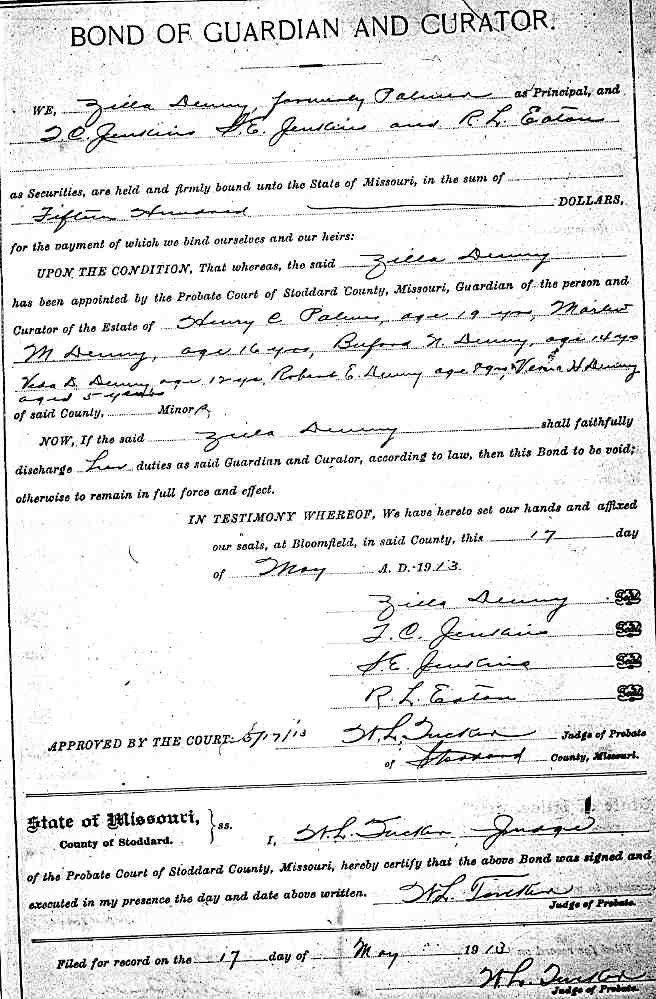 BOND OF GUARDIAN AND CURATOR.
WE, Zilla Denny, formerly Palmer as Principal, and
T. C. Jenkins S. E. Jenkins and R. L. Eaton
as Securities, are held and firmly bound unto the State of Missouri, in the sum of
Fifteen Hundred DOLLARS,
for the payment of which we bind ourselves and our heirs:
UPON THE CONDITION, That whereas, the said Zilla Denny
has been appointed by the Probate Court of Stoddard County, Missouri, Guardian of the person and
Curator of the Estate of Henry C Palmer, age 19 yrs,
M Denny, age 16 yrs, Buford N Denny, age 14 yrs
Veda D. Denny age 12 yrs, Robert E. Denny age 8 yrs, & H Denny
aged 5 years
of said County, Minors,
NOW, If the said Zilla Denny shall faithfully
discharge her duties as said Guardian and Curator, according to law, then this Bond to be void;
otherwise to remain in full force and effect.
IN TESTIMONY WHEREOF, We have hereto set our hands and affixed
our seals, at Bloomfield, in said County, this 17 day
of May A. D. 1913.
Zilla Denny Seal
T. C. Jenkins Seal
S. E. Jenkins Seal
R. L. Eaton Seal
APPROVED BY THE COURT: 5/17/13 W. L. Tucker Judge of Probate
of Stoddard County, Missouri.
State of Missouri, } ss.
County of Stoddard. I, W. L. Tucker Judge
of the Probate Court of Stoddard County, Missouri, hereby certify that the above Bond was signed and
executed in my presence the day and date above written. W. L. Tucker
Judge of Probate.
Filed for record on the 17 day of May 1913
W. L. Tucker
Judge of Probate.